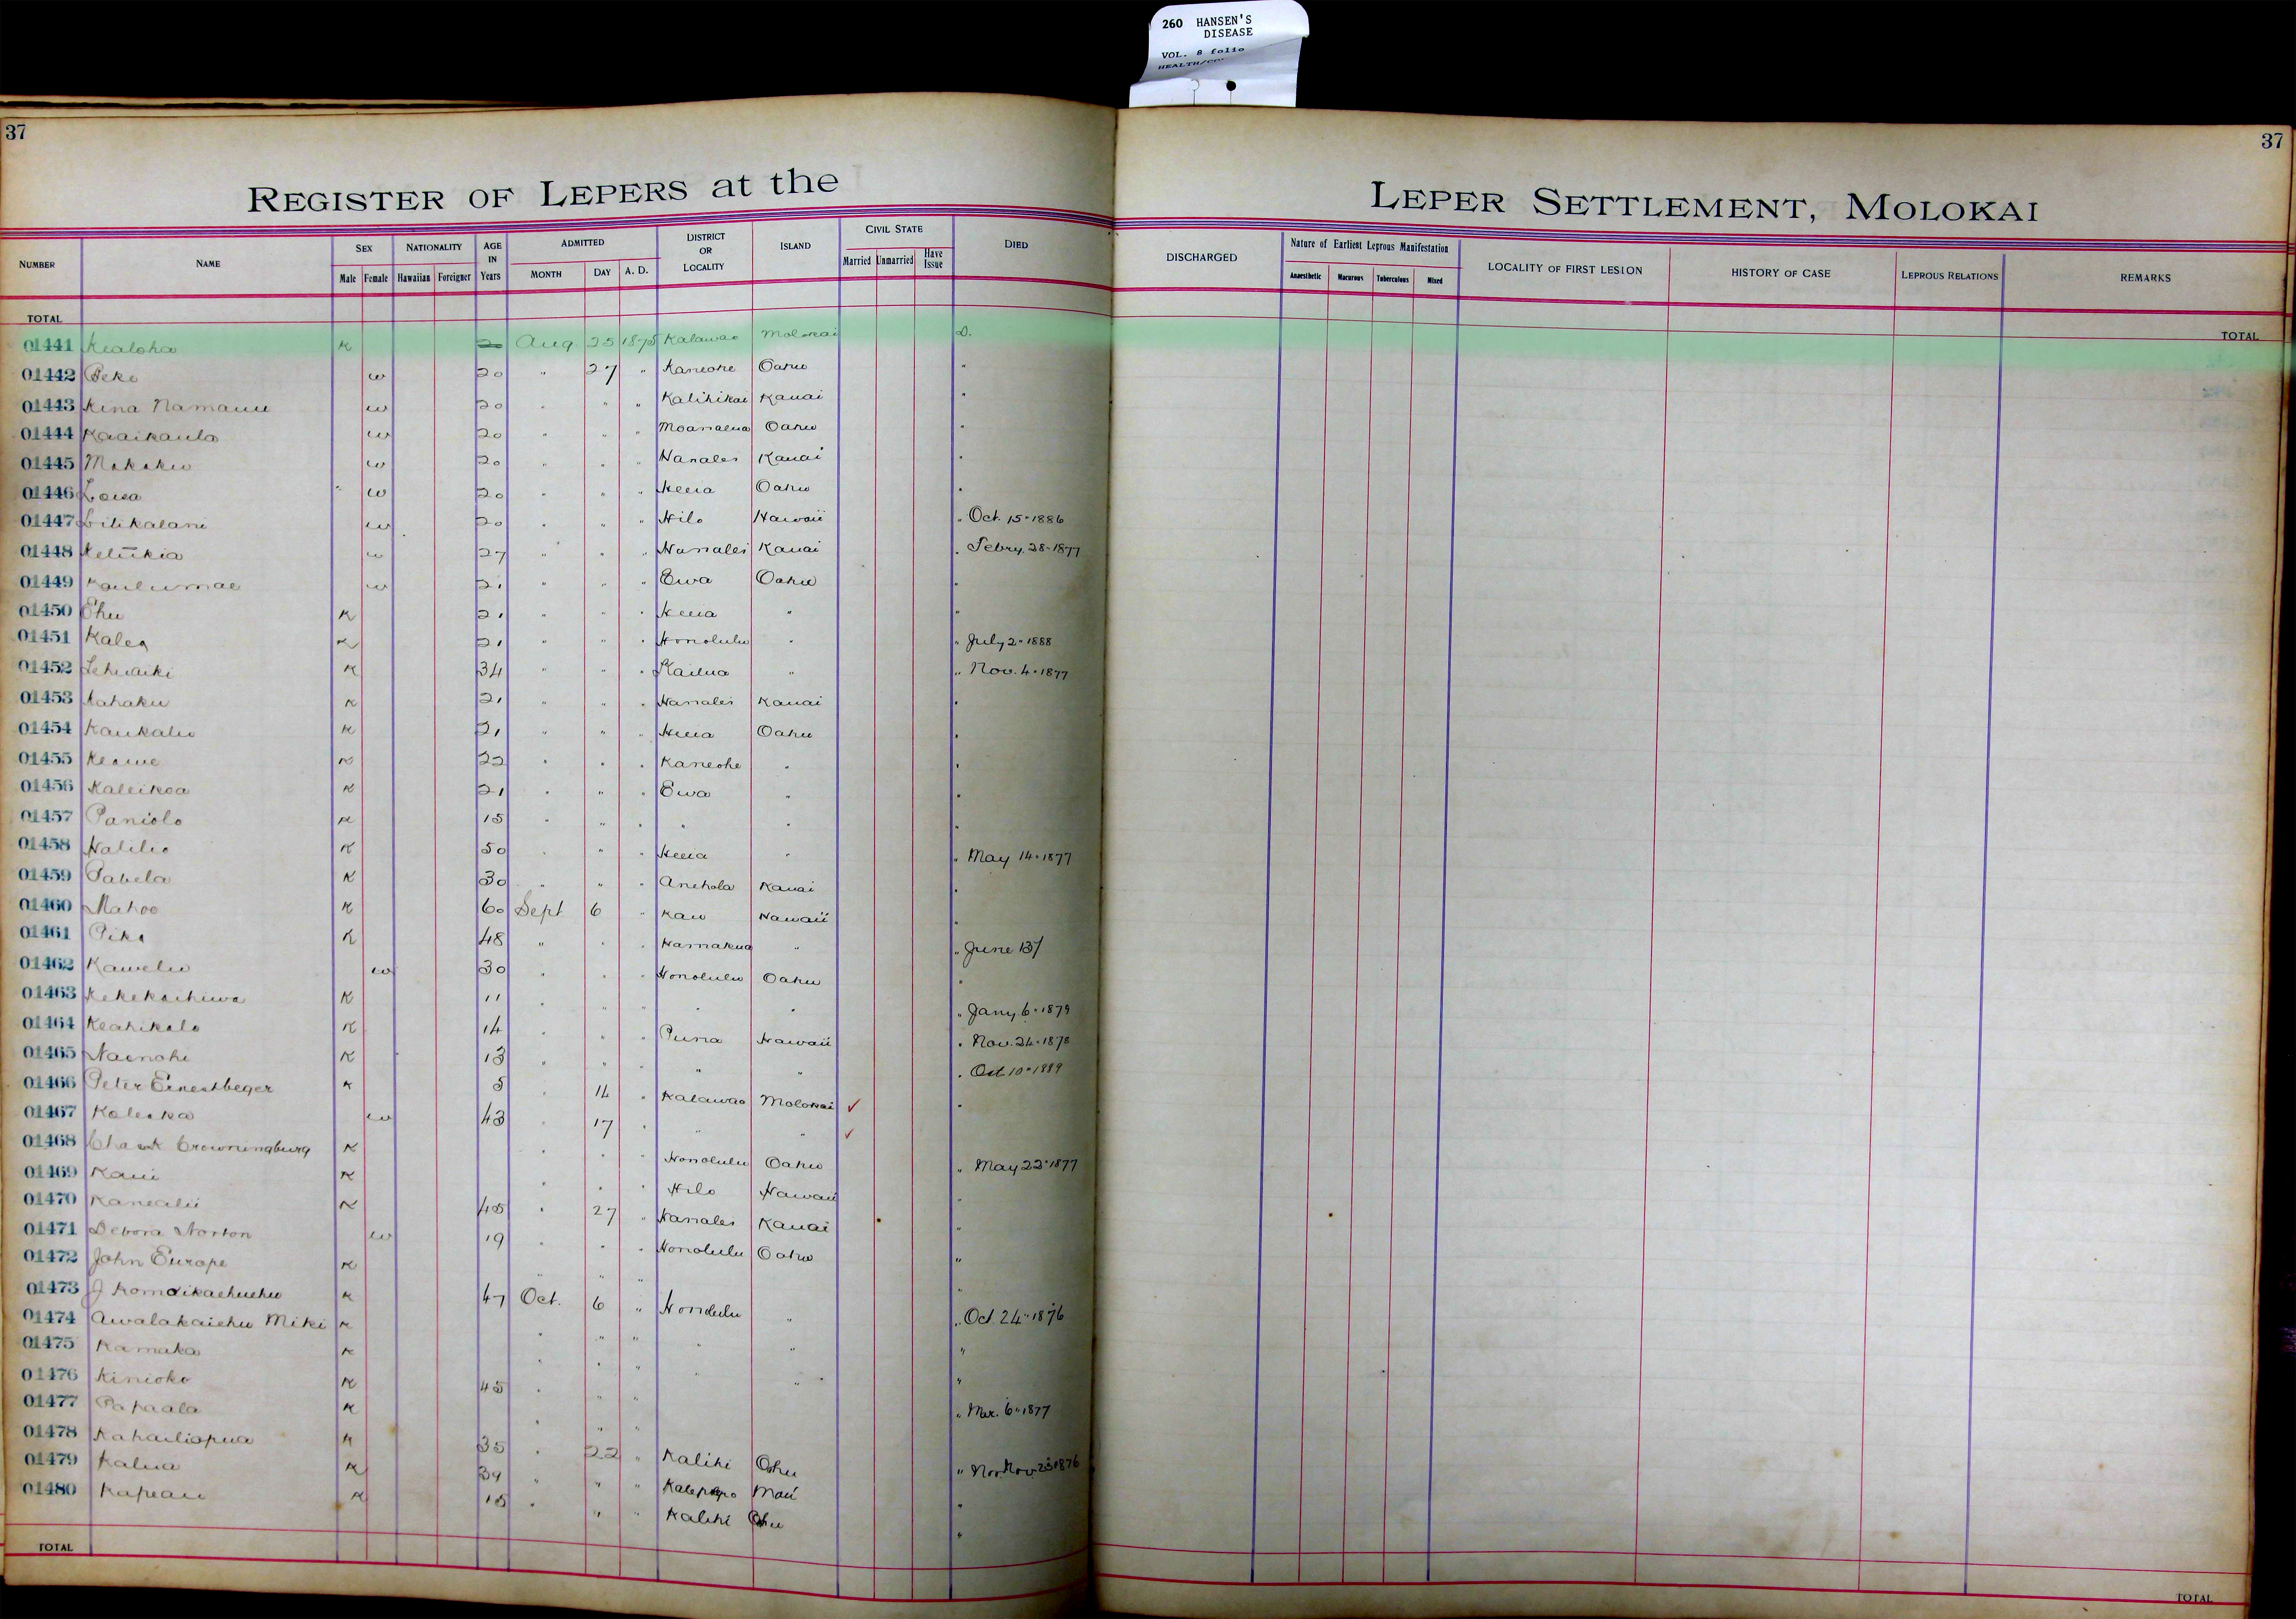 260 HANSEN'S
DISEASE
VOL. 8 folio
37
37
REGISTER OF LEPERS at the LEPER SETTLEMENT, MOLOKAI
NUMBER NAME SEX Male Female NATIONALITY Hawaiian Foreigner AGE IN Years ADMITTED MONTH DAY A. D. DISTRICT OR LOCALITY ISLAND CIVIL STATE Married Unmarried Have Issue DIED DISCHARGED Nature of Earliest Leprous Manifestation Anaesthetic Macurous Tuberculous Mixed LOCALITY OF FIRST LESION HISTORY OF CASE LEPROUS RELATIONS REMARKS
TOTAL TOTAL
01441 Kealoha K 20 Aug 25 1875 Kalawao Molokai D.
01442 Peke w 20 " 27 " Kaneohe Oahu "
01443 Kina Namauu w 20 " " " Kalihikai Kauai "
01444 Kaaikaula w 20 " " " Moanalua Oahu "
01445 w 20 " " " Hanalei Kauai "
01446 w 20 " " " Heeia Oahu "
01447 Lilikalani w 20 " " " Hilo Hawaii " Oct. 15 " 1886
01448 Keliikia w 27 " " " Hanalei Kauai " Febry. 28 " 1877
01449 Kaulumae w 21 " " " Ewa Oahu "
01450 Ehu K 21 " " " Heeia " "
01451 Kalea K 21 " " " Honolulu " " July 2 " 1888
01452 Lehuaiki K 34 " " " Kailua " " Nov. 4 " 1877
01453 Kahaku K 21 " " " Hanalei Kauai "
01454 Kaukaliu K 21 " " " Heeia Oahu "
01455 Keawe K 22 " " " Kaneohe " "
01456 Kaleikoa K 21 " " " Ewa " "
01457 Paniolo K 15 " " " " " "
01458 Halilio K 50 " " " Heeia " " May 14 " 1877
01459 Pabela K 30 " " " Anehola Kauai "
01460 Mahoe K 60 Sept 6 " Kau Hawaii "
01461 Pika K 48 " " " Hamakua " " June 137
01462 Kawelu w 30 " " " Honolulu Oahu "
01463 Kekekaihiwa K 11 " " " " " " Jany. 6 " 1879
01464 Keahikalo K 14 " " " Puna Hawaii " Nov. 24 " 1878
01465 Nainohi K 13 " " " " " " Oct 10 " 1889
01466 Peter Ernestbeger K 5 " 14 " Kalawao Molokai ✓ "
01467 Kaleika w 43 " 17 " " " ✓
01468 Crowningburg K " " " Honolulu Oahu " May 22 " 1877
01469 Kaui K " " " Hilo Hawaii "
01470 Kanealii K 45 " 27 " Hanalei Kauai "
01471 Debora Norton w 19 " " " Honolulu Oahu "
01472 John Europe K " " " "
01473 J Komoikaehuehu K 47 Oct. 6 " Honolulu " " Oct. 24 " 1876
01474 Awalakaiehu Miki K " " " " " "
01475 Kamaka K " " " " " "
01476 Kinioko K 45 " " " " Mar. 6 " 1877
01477 Papaala K " " "
01478 Kahailiopua K 35 " 22 " Kalihi Oahu " Nov. 23 1876
01479 Kalua K 34 " " " Maui "
01480 Kapeau K 15 " " " Kalihi Oahu "
TOTAL TOTAL